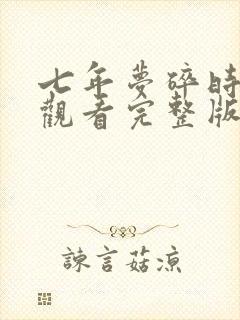 七年夢碎時
觀看完整版
諫言菇涼